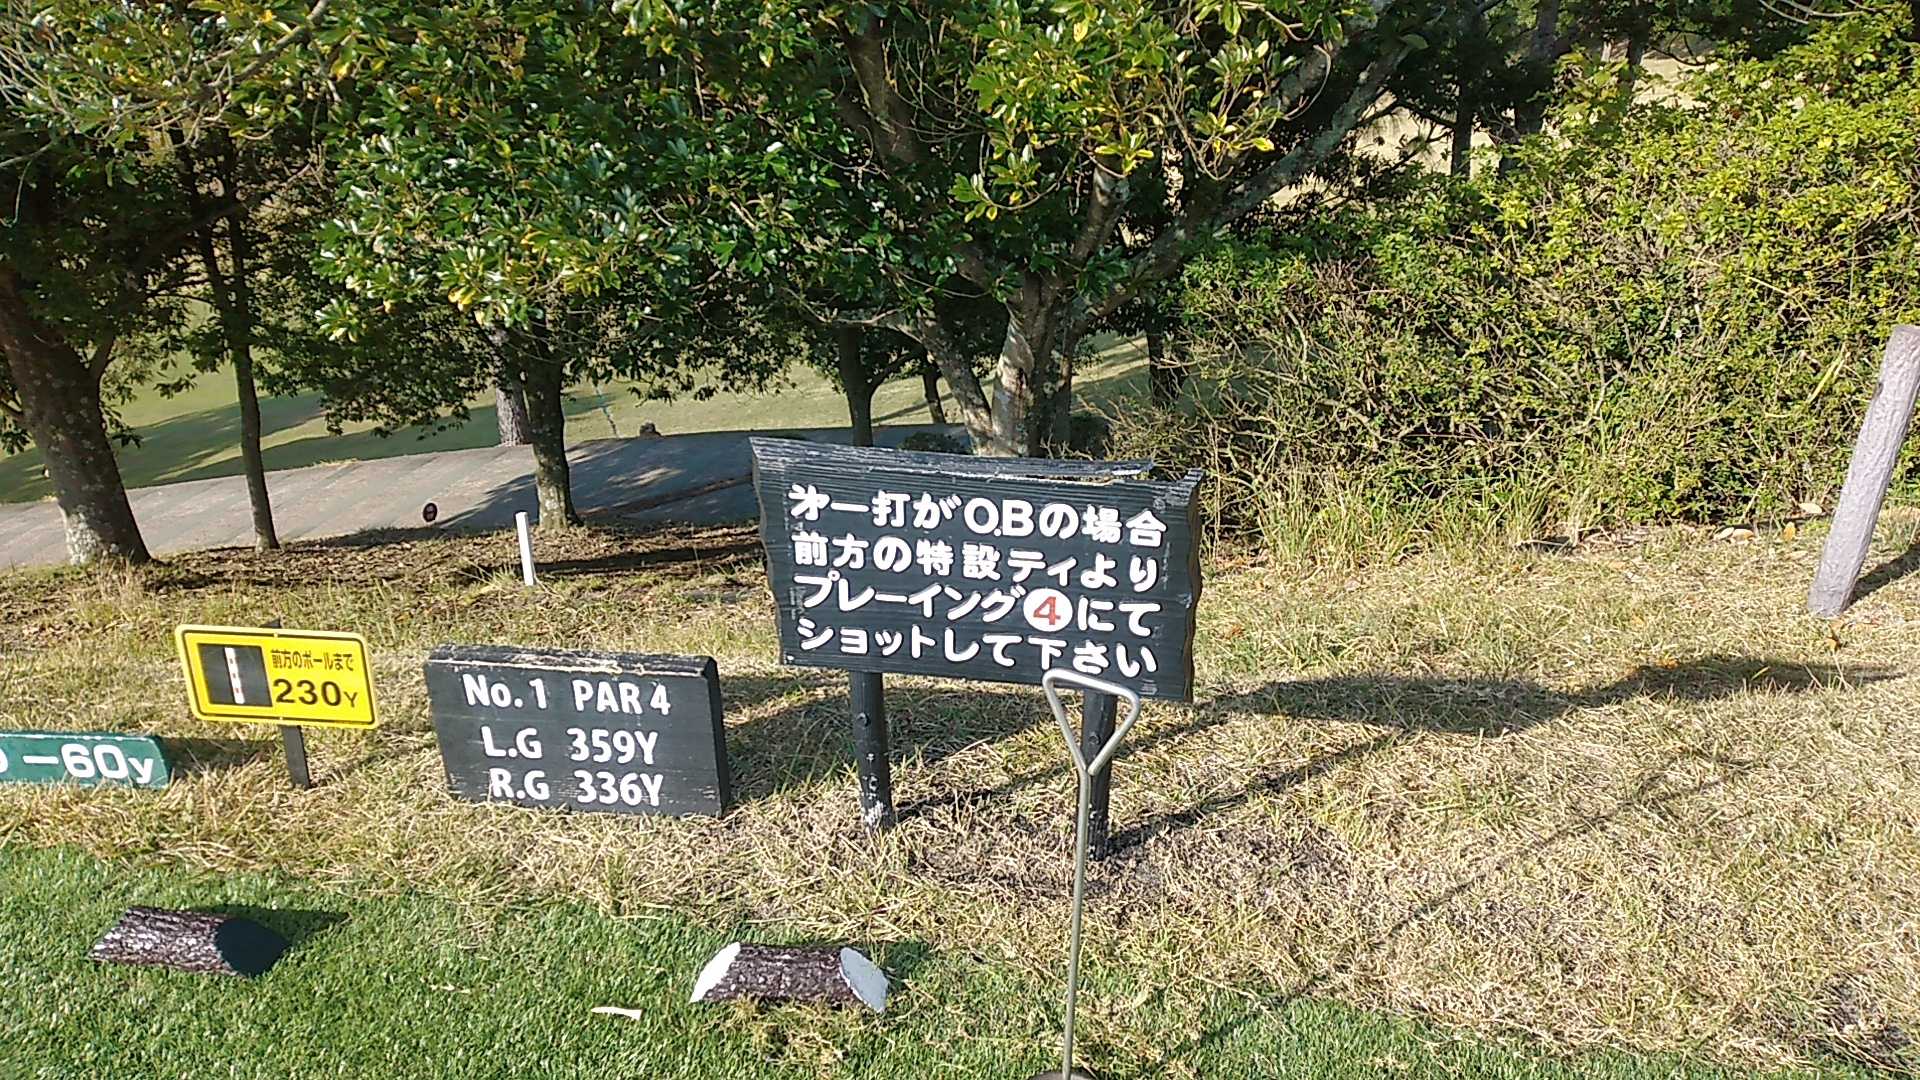 㐧一打がO.Bの場合
前方の特設ティより
プレーイング④にて
ショットして下さい
No.1 PAR 4
L.G 359Y
R.G 336Y
前方のポールまで
230Y
-60y